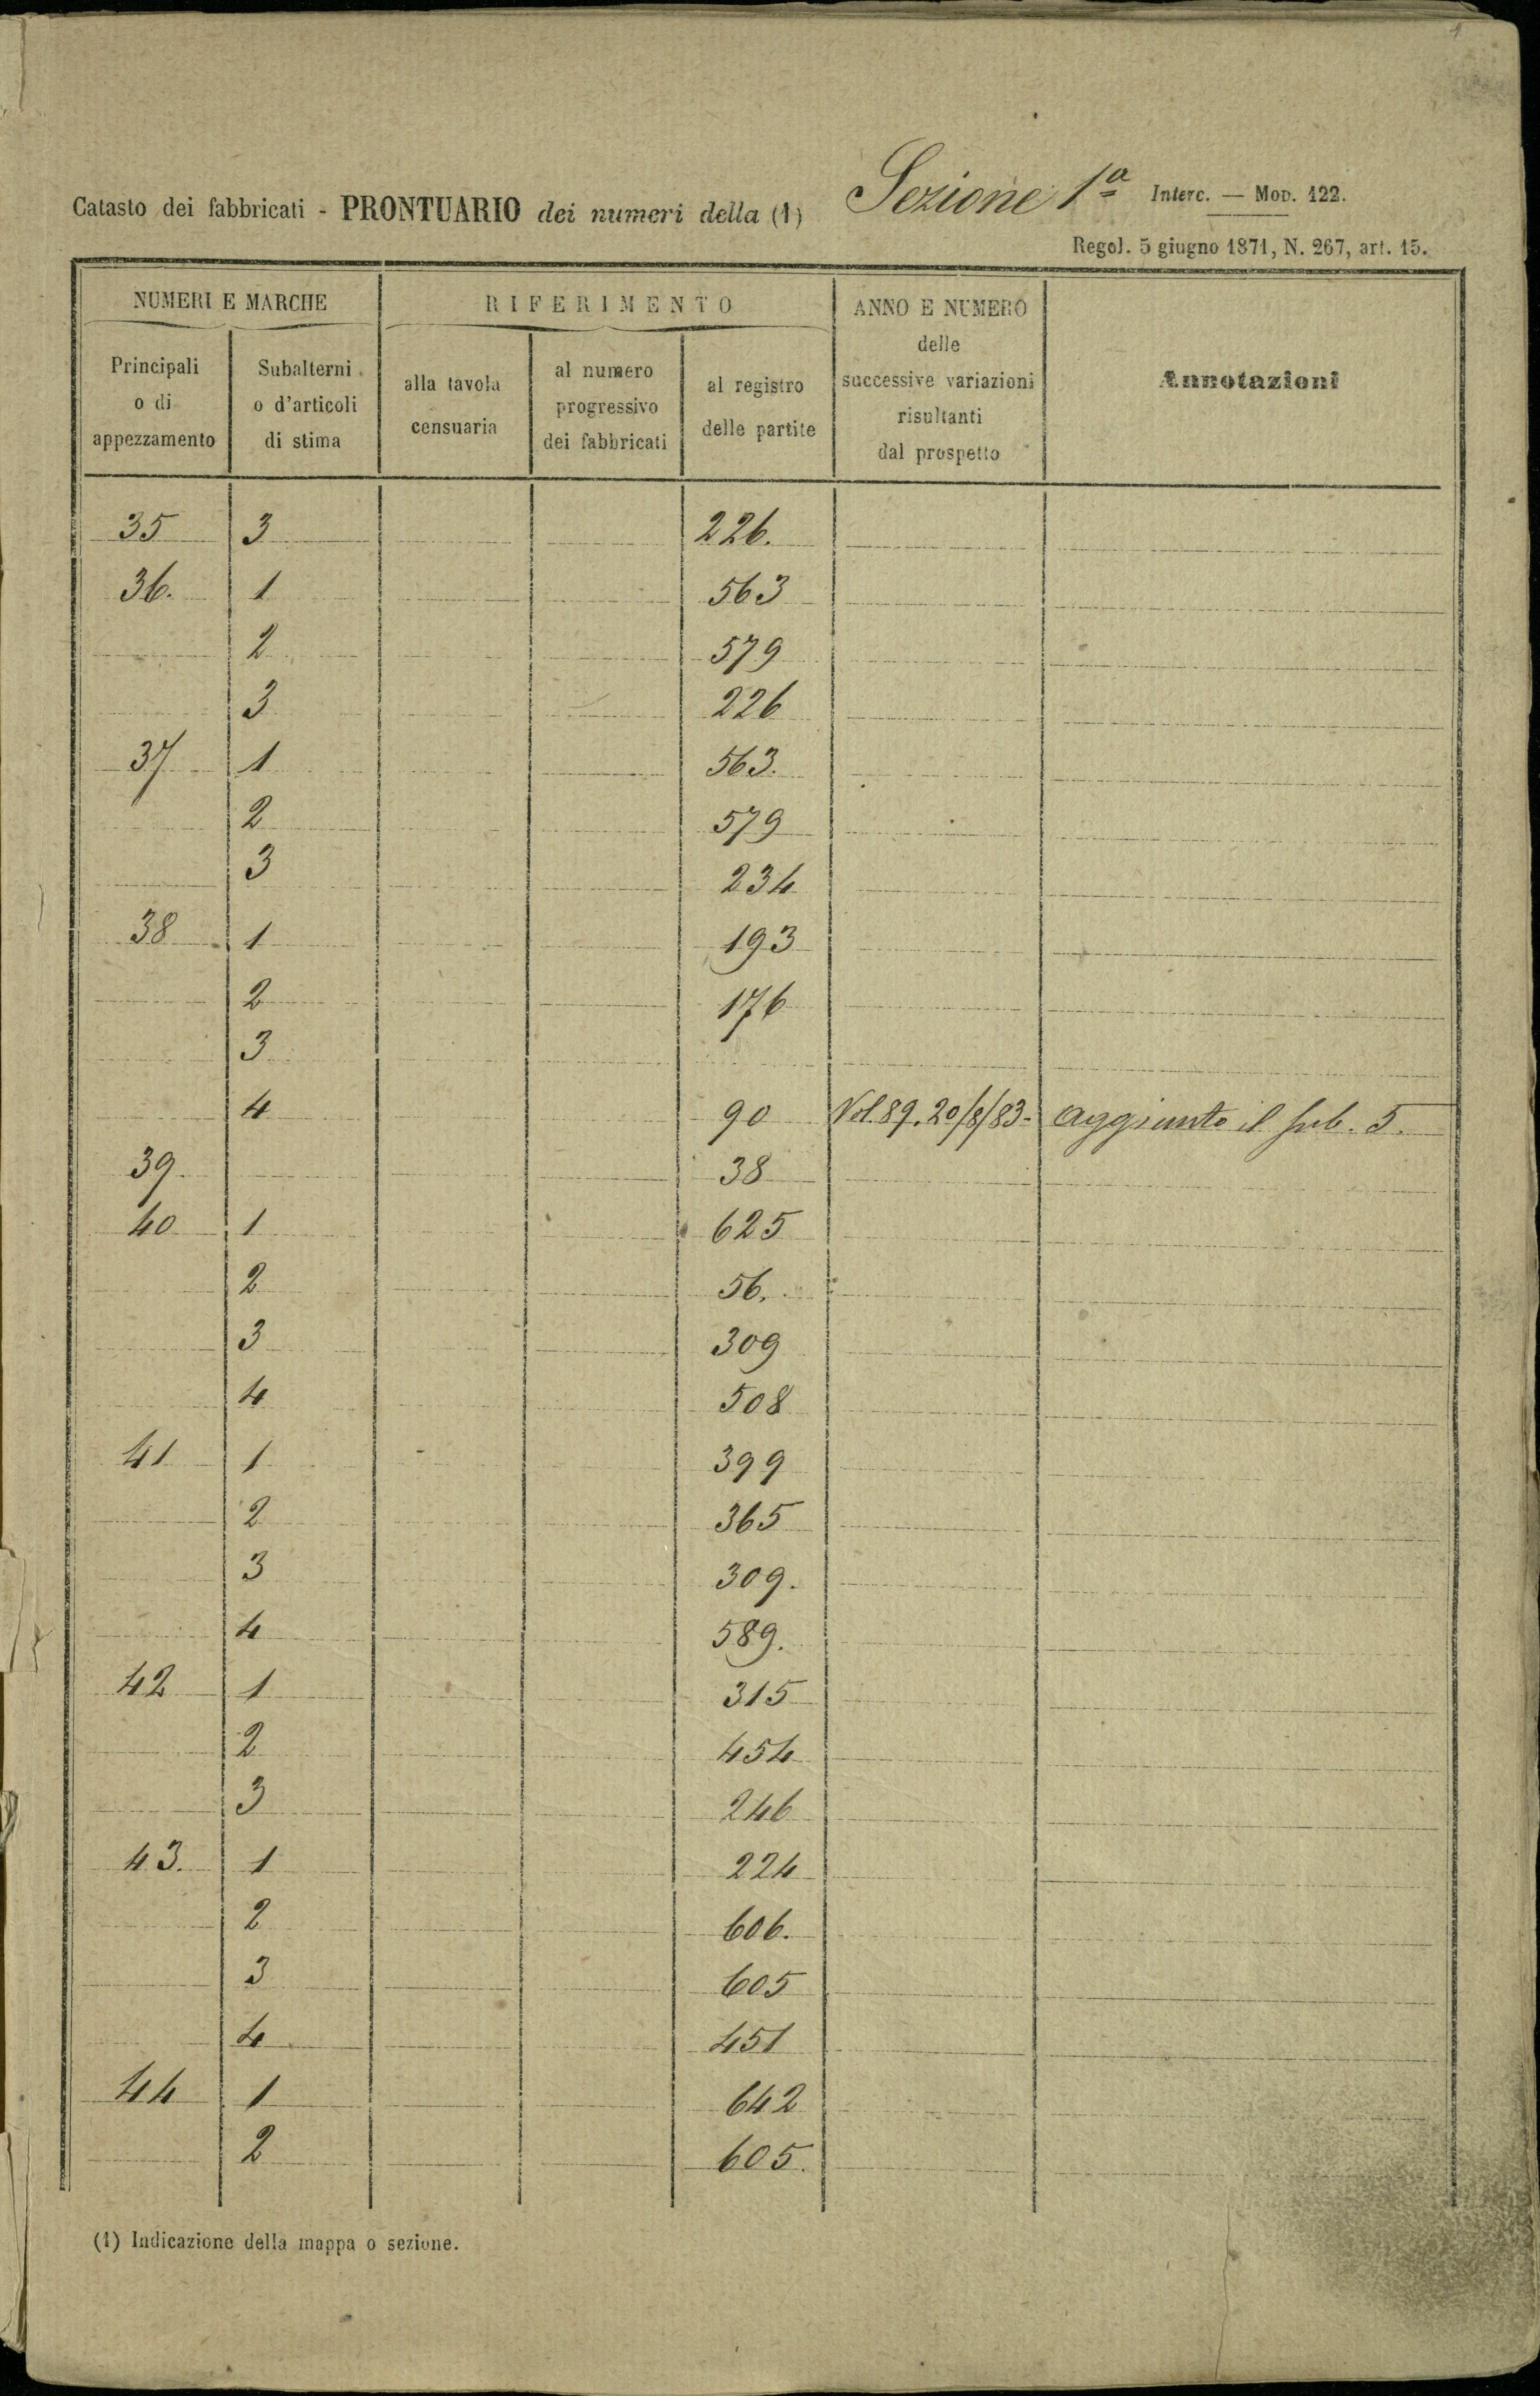 Catasto dei fabbricati - PRONTUARIO dei numeri della (1) Sezione 1ª Interc. — Mod. 122.
Regol. 5 giugno 1871, N. 267, art. 15.
NUMERI E MARCHE RIFERIMENTO ANNO E NUMERO delle successive variazioni risultanti dal prospetto Annotazioni
Principali o di appezzamento Subalterni o d'articoli di stima alla tavola censuaria al numero progressivo dei fabbricati al registro delle partite
35 3 226.
36. 1 563
2 579
3 226
37 1 563.
2 579
3 234
38 1 193
2 176
3
4 90 Vol. 89. 20/8/83- aggiunto il sub. 5.
39. 38
40 1 625
2 56.
3 309
4 508
41 1 399
2 365
3 309.
4 589.
42 1 315
2 454
3 246
43. 1 224
2 606.
3 605
4 451
44 1 642
2 605.
(1) Indicazione della mappa o sezione.